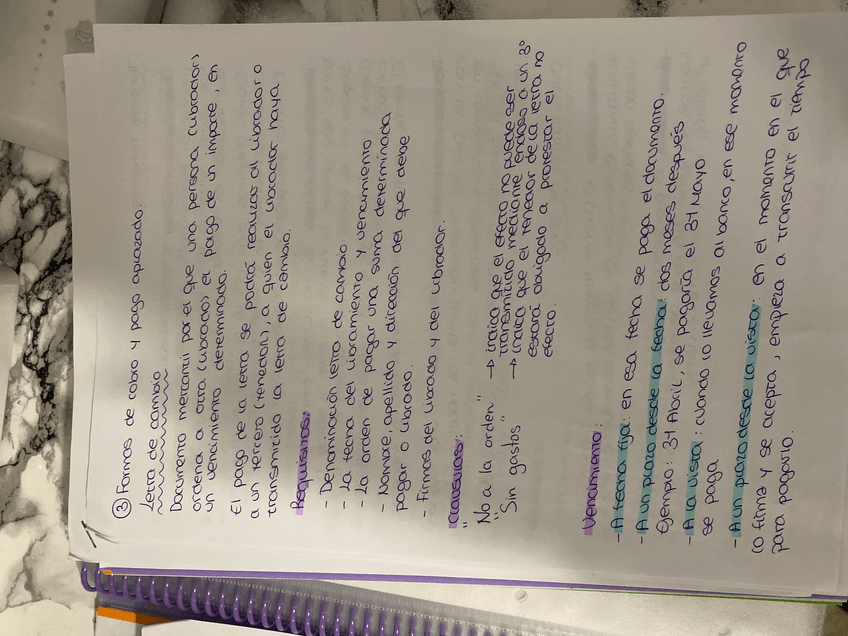 ③ Formas de cobro y pago aplazado.
Letra de cambio
Documento mercantil por el que una persona (librador)
ordena a otra (librado) el pago de un importe, en
un vencimiento determinado.
El pago de la letra se podrá realizar al librador o
a un tercero (tenedor), a quien el librador haya
transmitido la letra de cambio.
Requisitos:
- Denominación letra de cambio
- La fecha del libramiento y vencimiento
- La orden de pagar una suma determinada
- Nombre, apellido y dirección del que debe
pagar o librado.
- Firmas del librado y del librador.
Claúsulas:
"No a la orden" → indica que el efecto no puede ser
transmitido mediante endoso a un 3º
"Sin gastos" → indica que el tenedor de la letra no
estará obligado a protestar el
efecto.
Vencimiento:
- A fecha fija: en esa fecha se paga el documento.
- A un plazo desde la fecha: dos meses después
Ejemplo: 31 Abril, se pagaría el 31 Mayo
- A la vista: cuando lo llevamos al banco, en ese momento
se paga
- A un plazo desde la vista: en el momento en el que
lo firma y se acepta, empieza a transcurrir el tiempo
para pagarlo.